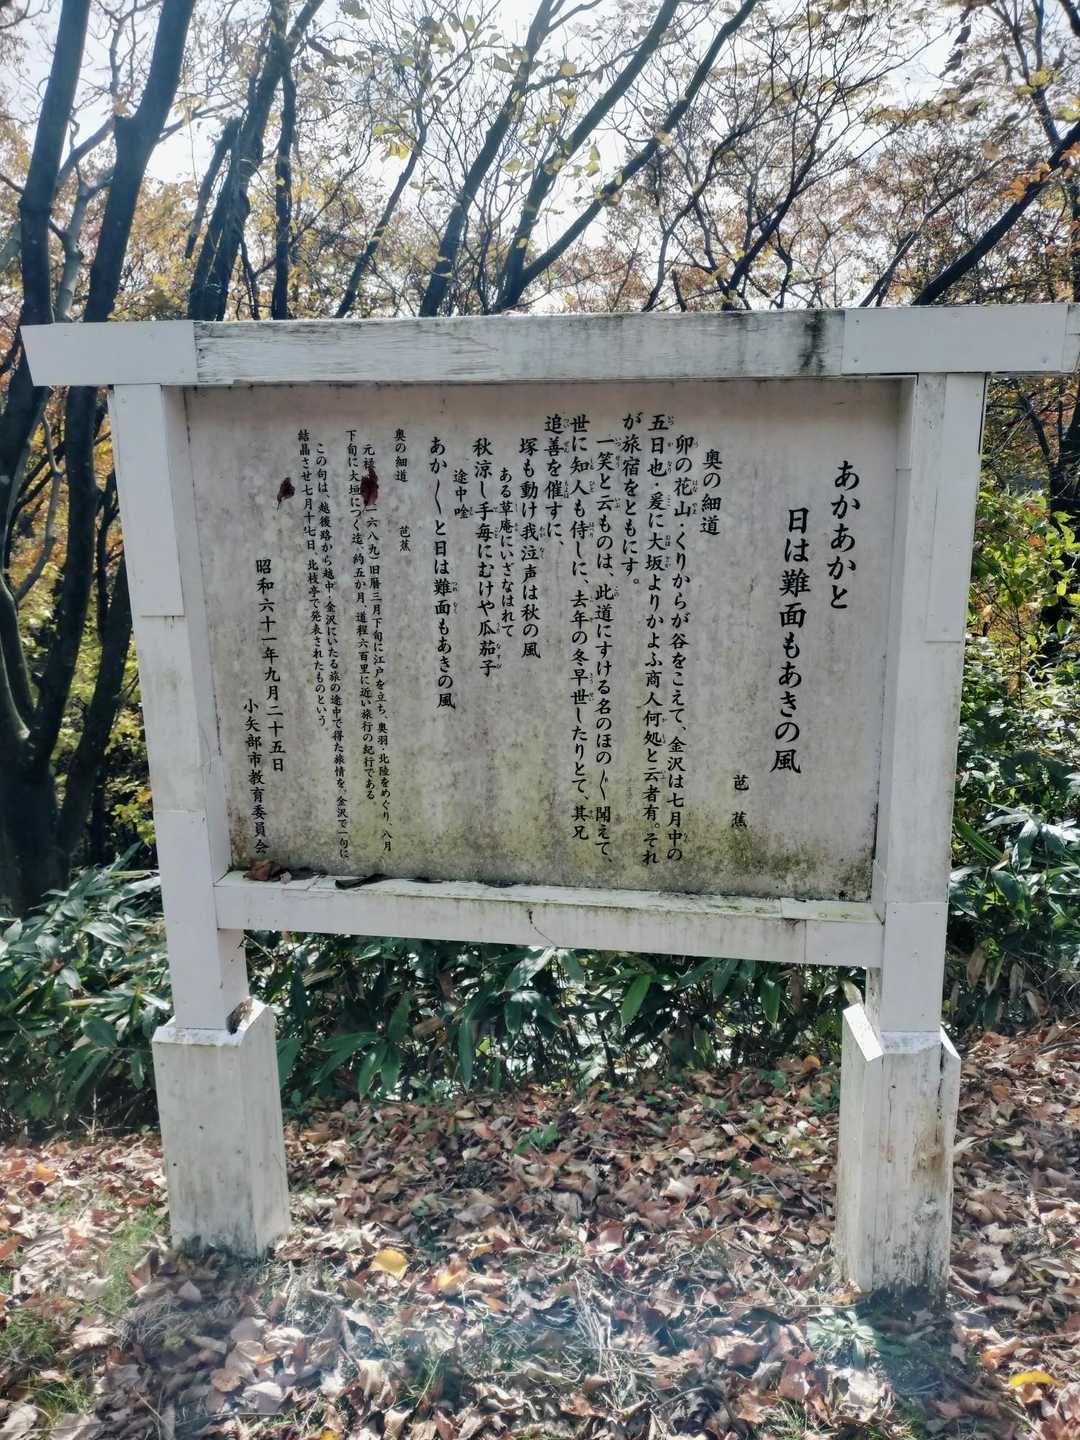 あかあかと
日は難面もあきの風
芭蕉
奥の細道
卯の花山・くりからが谷をこえて、金沢は七月中の
五日也・爰に大坂よりかよふ商人何処と云者有。それ
が旅宿をともにす。
一笑と云ものは、此道にすける名のほの〱聞えて、
世に知人も侍しに、去年の冬早世したりとて、其兄
追善を催すに、
塚も動け我泣声は秋の風
ある草庵にいざなはれて
秋涼し手毎にむけや瓜茄子
途中唫
あか〱と日は難面もあきの風
奥の細道 芭蕉
元禄 一六八九)旧暦三月下旬に江戸を立ち、奥羽・北陸をめぐり、八月
下旬に大垣につく迄、約五か月、道程六百里に近い旅行の紀行である。
この句は、越後路から越中・金沢にいたる旅の途中で得た旅情を、金沢で一句に
結晶させ七月十七日、北枝亭で発表されたものという。
昭和六十一年九月二十五日
小矢部市教育委員会